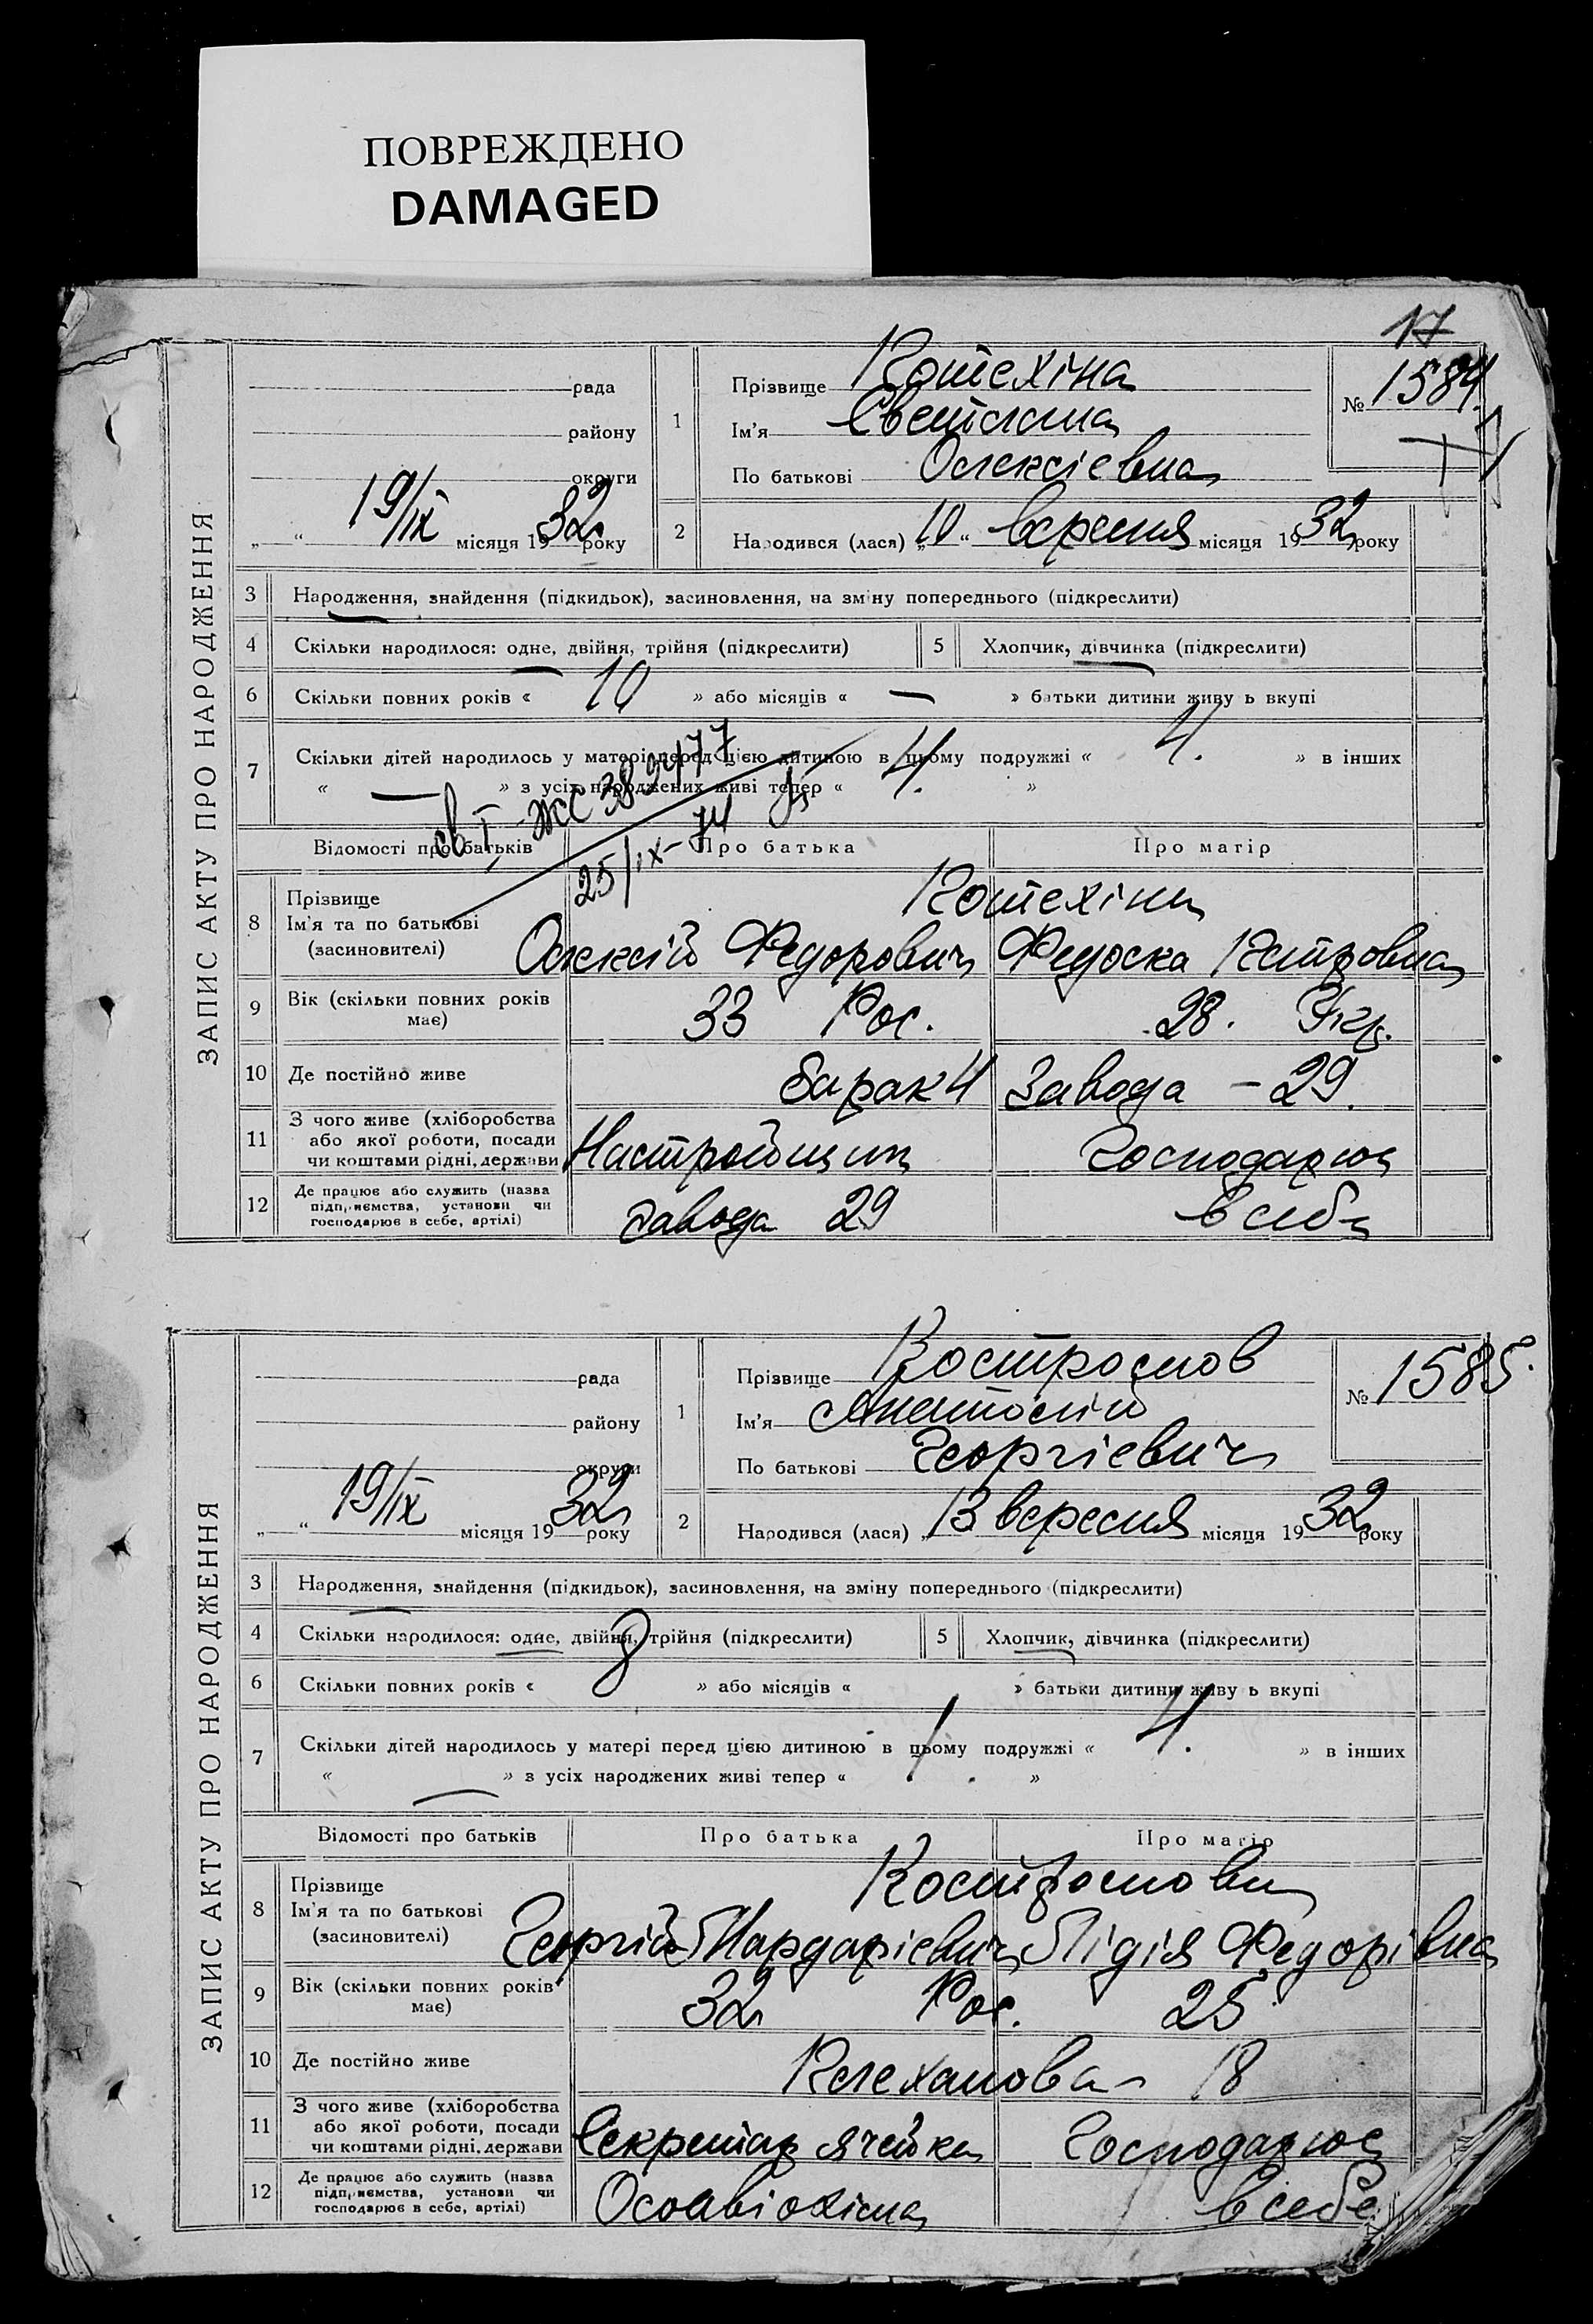 ПОВРЕЖДЕНО
DAMAGED
17
ЗАПИС АКТУ ПРО НАРОДЖЕННЯ
рада
району
округи
„ “ 19/IX місяця 1932 року
1
Прізвище Потехіна
Ім'я Светлана
По батькові Олексієвна
№ 1584.
2
Народився (лася) „10“ вересня місяця 1932 року
3 Народження, знайдення (підкидьок), засиновлення, на зміну попереднього (підкреслити)
4 Скільки народилося: одне, двійня, трійня (підкреслити) 5 Хлопчик, дівчинка (підкреслити)
6 Скільки повних років « 10 » або місяців « — » батьки дитини живуть вкупі
7 Скільки дітей народилось у матері перед цією дитиною в цьому подружжі « 4. » в інших
« — » з усіх народжених живі тепер « 4. »
св. I-ЖС 389477
25/IX-74
Відомості про батьків Про батька Про матір
8 Прізвище
Ім'я та по батькові
(засиновителі)
Потехіни
Олексій Федорович Федоска Петровна
9 Вік (скільки повних років має) 33 Рос. 28. Укр.
10 Де постійно живе барак 4 Завода – 29.
11 З чого живе (хліборобства або якої роботи, посади чи коштами рідні, держави Настройщик Господарює
12 Де працює або служить (назва підприємства, установи чи господарює в себе, артілі) Завода 29 в себе
ЗАПИС АКТУ ПРО НАРОДЖЕННЯ
рада
району
округи
„ “ 19/IX місяця 1932 року
1
Прізвище Костромов
Ім'я Анатолій
По батькові Георгієвич
№ 1585.
2
Народився (лася) „13 вересня місяця 1932 року
3 Народження, знайдення (підкидьок), засиновлення, на зміну попереднього (підкреслити)
4 Скільки народилося: одне, двійня, трійня (підкреслити) 5 Хлопчик, дівчинка (підкреслити)
6 Скільки повних років « 8 » або місяців « » батьки дитини живуть вкупі
7 Скільки дітей народилось у матері перед цією дитиною в цьому подружжі « 4. » в інших
« — » з усіх народжених живі тепер « 1. »
Відомості про батьків Про батька Про матір
8 Прізвище
Ім'я та по батькові
(засиновителі)
Костромови
Георгій Мардарієвич Лідія Федорівна
9 Вік (скільки повних років має) 32 Рос. 25
10 Де постійно живе Плеханова 18
11 З чого живе (хліборобства або якої роботи, посади чи коштами рідні, держави Секретар ячейки Господарює
12 Де працює або служить (назва підприємства, установи чи господарює в себе, артілі) Осоавіохіма в себе